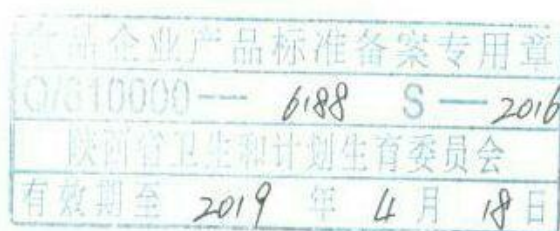 食品企业产品标准备案专用章
Q/610000— 6188 S—2016
陕西省卫生和计划生育委员会
有效期至 2019 年 4 月 18 日